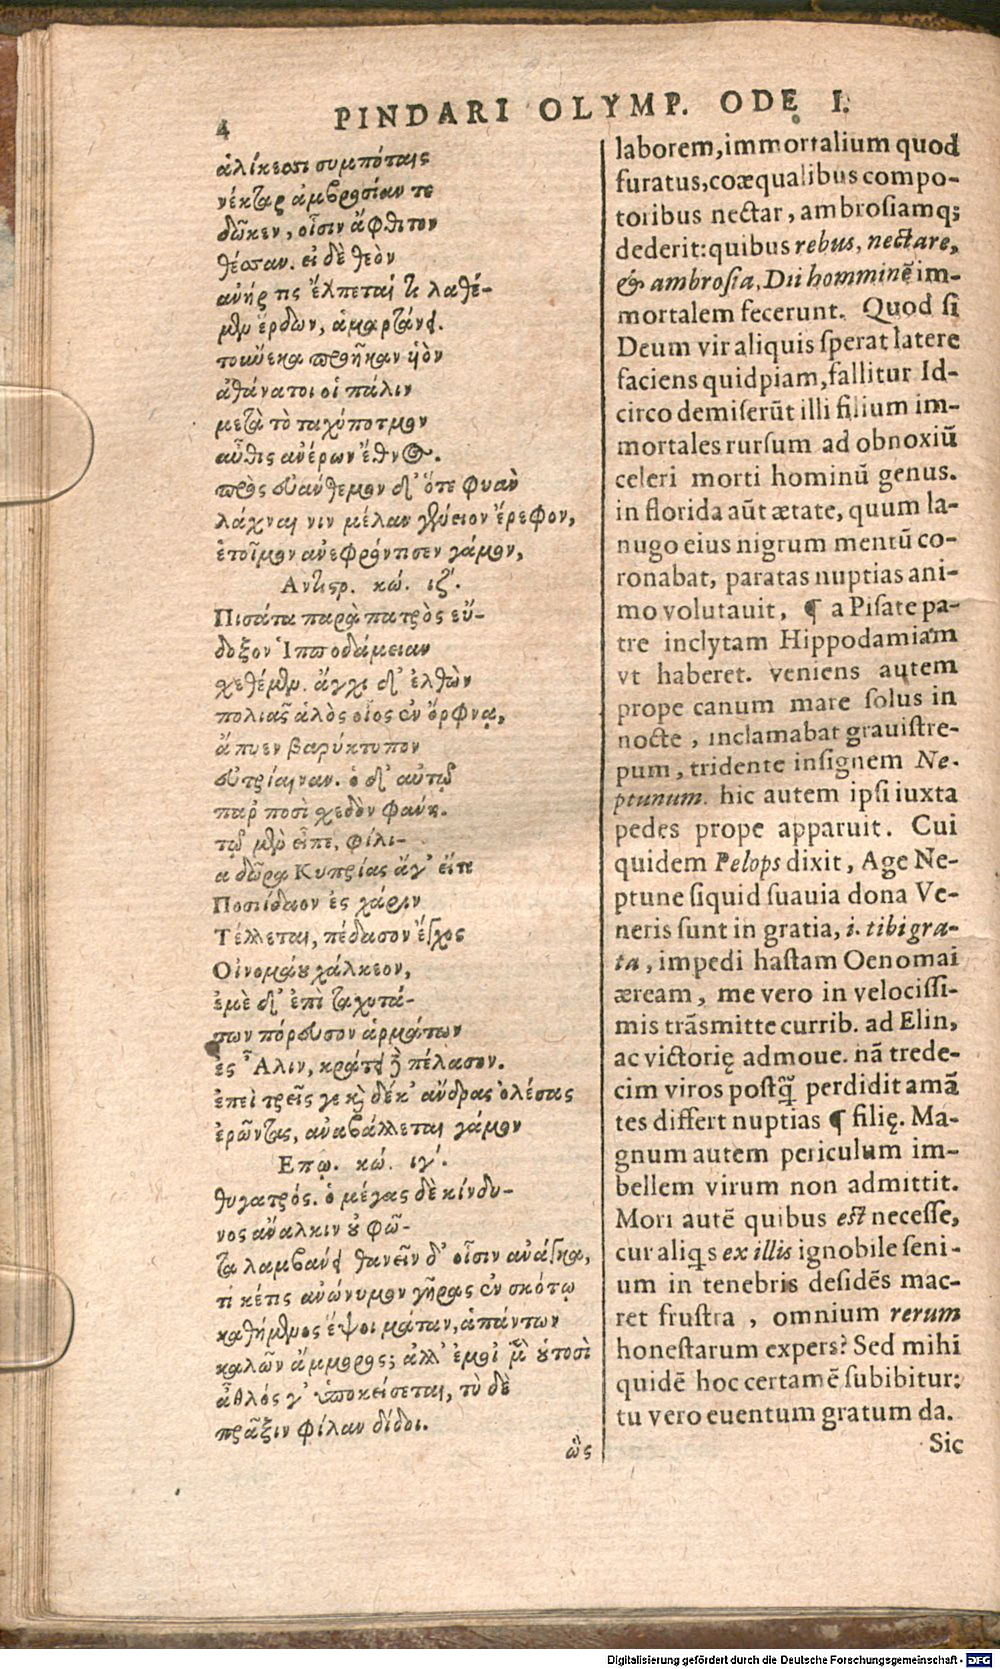 4
PINDARI OLYMP. ODE I.
ἁλίκεσσι συμπόταις
νέκταρ ἀμβροσίαν τε
δῶκεν, οἷσιν ἄφθιτον
θέσσαν. εἰ δὲ θεὸν
ἀνήρ τις ἔλπεταί τι λαθέ-
μεν ἔρδων, ἁμαρτάνει.
τοὔνεκα προῆκαν υἱὸν
ἀθάνατοι οἱ πάλιν
μετὰ τὸ ταχύποτμον
αὖθις ἀνέρων ἔθνος.
πρὸς εὐάνθεμον δ' ὅτε φυὰν
λάχναι νιν μέλαν γένειον ἔρεφον,
ἑτοῖμον ἀνεφρόντισεν γάμον,
Αντιστρ. κώ. ιζ'.
Πισάτα παρὰ πατρὸς εὔ-
δοξον Ἱπποδάμειαν
σχεθέμεν. ἄγχι δ' ἐλθὼν
πολιᾶς ἁλὸς οἶος ἐν ὄρφνᾳ,
ἄπυεν βαρύκτυπον
εὐτρίαιναν. ὁ δ' αὐτῷ
παρ ποσὶ σχεδὸν φάνη.
τῷ μὲν εἶπε, φίλι-
α δῶρα Κυπρίας ἄγ' εἴτι
Ποσείδαον ἐς χάριν
Τέλλεται, πέδασον ἔγχος
Οἰνομάου χάλκεον,
ἐμὲ δ' ἐπὶ ταχυτά-
των πόρευσον ἁρμάτων
ἐς Ἆλιν, κράτει δὲ πέλασον.
ἐπεὶ τρεῖς γε καὶ δέκ' ἄνδρας ὀλέσας
ἐρῶντας, ἀναβάλλεται γάμον
Επῳ. κώ. ιγ'.
θυγατρός. ὁ μέγας δὲ κίνδυ-
νος ἄναλκιν οὐ φῶ-
τα λαμβάνει θανεῖν δ' οἷσιν ἀνάγκα,
τί κέ τις ἀνώνυμον γῆρας ἐν σκότῳ
καθήμενος ἕψοι μάταν, ἁπάντων
καλῶν ἄμμορος; ἀλλ' ἐμοὶ μὲν οὑτοσὶ
ἆθλός γ' ὑποκείσεται, τὺ δὲ
πρᾶξιν φίλαν δίδοι.
ὣς
laborem, immortalium quod
furatus, coæqualibus compo-
toribus nectar, ambrosiamq;
dederit: quibus rebus, nectare,
& ambrosia, Dii homminē im-
mortalem fecerunt. Quod si
Deum vir aliquis sperat latere
faciens quidpiam, fallitur Id-
circo demiserūt illi filium im-
mortales rursum ad obnoxiū
celeri morti hominū genus.
in florida aūt ætate, quum la-
nugo eius nigrum mentū co-
ronabat, paratas nuptias ani-
mo volutauit, ¶ a Pisate pa-
tre inclytam Hippodamiam
vt haberet. veniens autem
prope canum mare solus in
nocte, inclamabat grauistre-
pum, tridente insignem Ne-
ptunum. hic autem ipsi iuxta
pedes prope apparuit. Cui
quidem Pelops dixit, Age Ne-
ptune siquid suauia dona Ve-
neris sunt in gratia, i. tibi gra-
ta, impedi hastam Oenomai
æream, me vero in velocissi-
mis trāsmitte currib. ad Elin,
ac victorię admoue. nā trede-
cim viros postq̃ perdidit amā
tes differt nuptias ¶ filię. Ma-
gnum autem periculum im-
bellem virum non admittit.
Mori autē quibus est necesse,
cur aliqs ex illis ignobile seni-
um in tenebris desidēs mac-
ret frustra, omnium rerum
honestarum expers? Sed mihi
quidē hoc certamē subibitur:
tu vero euentum gratum da.
Sic
Digitalisierung gefördert durch die Deutsche Forschungsgemeinschaft - DFG